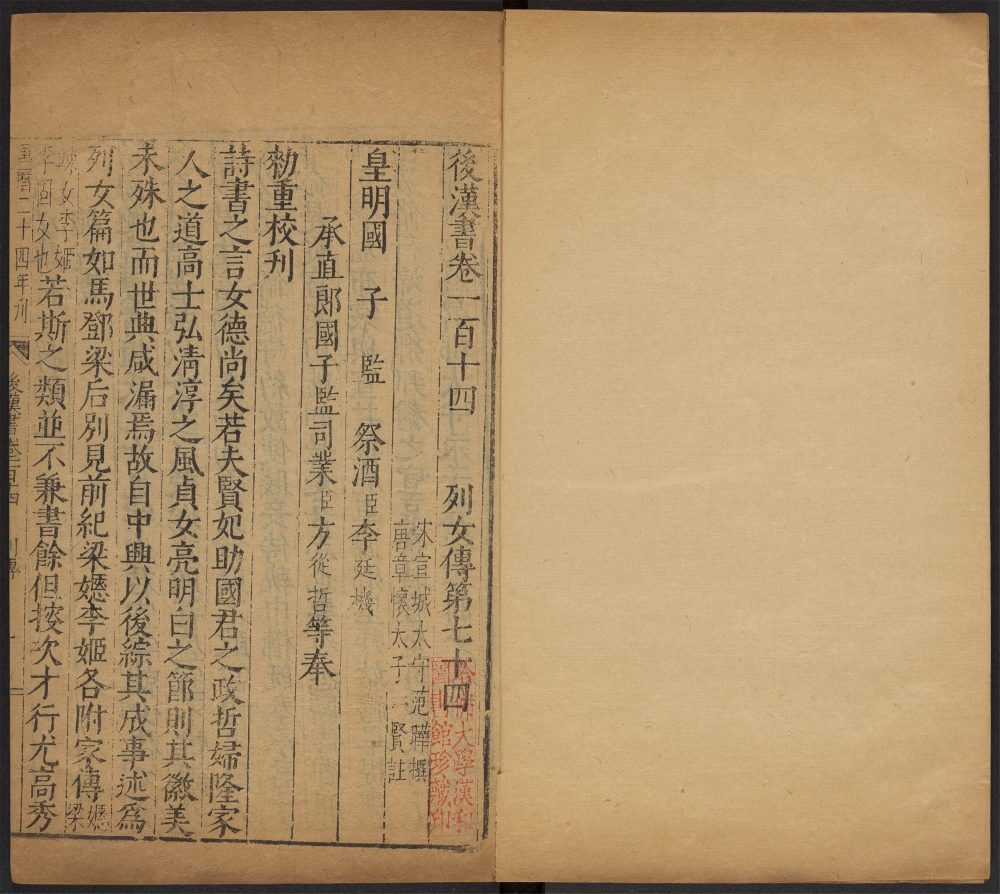 後漢書卷一百十四 列女傳第七十四
宋宣城太守范曄撰
唐章懷太子賢註
皇明國子監祭酒臣李廷機
承直郎國子監司業臣方從哲等奉
勑重校刊
詩書之言女德尚矣若夫賢妃助國君之政哲婦隆家
人之道高士弘淸淳之風貞女亮明白之節則其徽美
未殊也而世典咸漏焉故自中興以後綜其成事述爲
列女篇如馬鄧梁后別見前紀梁嫕李姬各附家傳嫕梁
竦女李姬李固女也若斯之類並不兼書餘但按次才行尤高秀
萬曆二十四年刊
後漢書卷一百十四 列傳 一
哈佛大學漢和
圖書館珍藏印